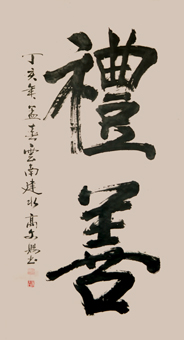 禮善
丁亥年孟春雲南建水高
書